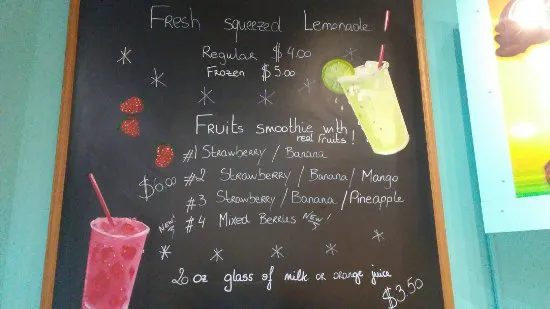 Fresh squeezed Lemonade
Regular $4.00
Frozen $5.00
Fruits smoothie with
real fruits!
#1 Strawberry / Banana
$6.00
#2 Strawberry / Banana / Mango
#3 Strawberry / Banana / Pineapple
New! #4 Mixed Berries New!
20 oz glass of milk or orange juice
$3.50